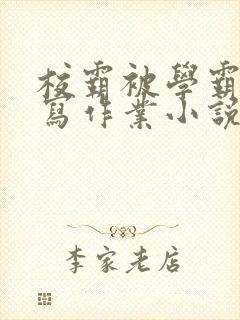 校霸被學霸
寫作業小說
李家老店